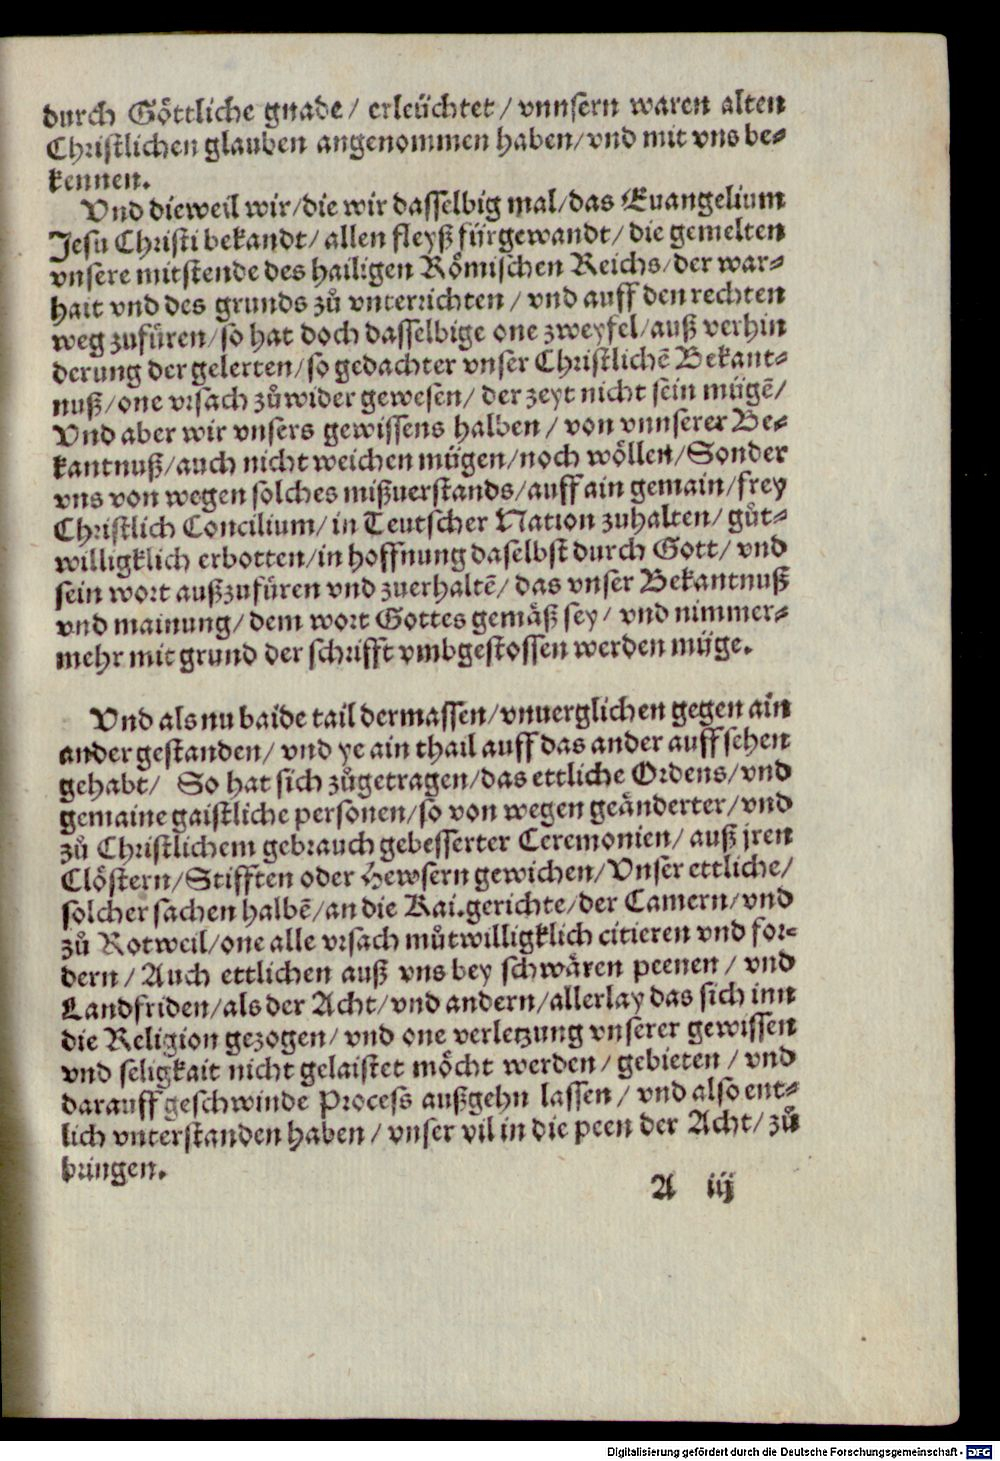 durch Göttliche gnade/ erleüchtet/ vnnsern waren alten
Christlichen glauben angenommen haben/ vnd mit vns be-
kennen.
Vnd dieweil wir/ die wir dasselbig mal/ das Euangelium
Jesu Christi bekandt/ allen fleyß fürgewandt/ die gemelten
vnsere mitstende des hailigen Römischen Reichs/ der war-
hait vnd des grunds zů vnterrichten/ vnd auff den rechten
weg zufüren/ so hat doch dasselbige one zweyfel/ auß verhin
derung der gelerten/ so gedachter vnser Christlichē Bekant-
nuß/ one vrsach zůwider gewesen/ der zeyt nicht sein mügē/
Vnd aber wir vnsers gewissens halben/ von vnnserer Be-
kantnuß/ auch nicht weichen mügen/ noch wöllen/ Sonder
vns von wegen solches mißuerstands/ auff ain gemain/ frey
Christlich Concilium/ in Teutscher Nation zuhalten/ gůt-
willigklich erbotten/ in hoffnung daselbst durch Gott/ vnd
sein wort außzufüren vnd zuerhaltē/ das vnser Bekantnuß
vnd mainung/ dem wort Gottes gemäß sey/ vnd nimmer-
mehr mit grund der schrifft vmbgestossen werden müge.
Vnd als nu baide tail dermassen/ vnuerglichen gegen ain
ander gestanden/ vnd ye ain thail auff das ander auffsehen
gehabt/ So hat sich zůgetragen/ das ettliche Ordens/ vnd
gemaine gaistliche personen/ so von wegen geänderter/ vnd
zů Christlichem gebrauch gebesserter Ceremonien/ auß jren
Clöstern/ Stifften oder Hewsern gewichen/ Vnser ettliche/
solcher sachen halbē/ an die Kai. gerichte/ der Camern/ vnd
zů Rotweil/ one alle vrsach můtwilligklich citieren vnd for-
dern/ Auch ettlichen auß vns bey schwären peenen/ vnd
Landfriden/ als der Acht/ vnd andern/ allerlay das sich inn
die Religion gezogen/ vnd one verletzung vnserer gewissen
vnd seligkait nicht gelaistet möcht werden/ gebieten/ vnd
darauff geschwinde Process außgehn lassen/ vnd also ent-
lich vnterstanden haben/ vnser vil in die peen der Acht/ zů
bringen.
A iij
Digitalisierung gefördert durch die Deutsche Forschungsgemeinschaft - DFG